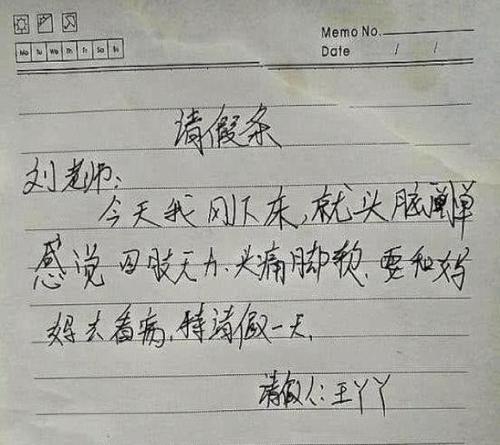 Memo No.
Mo Tu We Th Fr Sa Su
Date / /
请假条
刘老师:
今天我刚下床,就头脑
感说四肢无力、头痛脚软,要和妈
妈去看病,特请假一天.
请假人:王丫丫